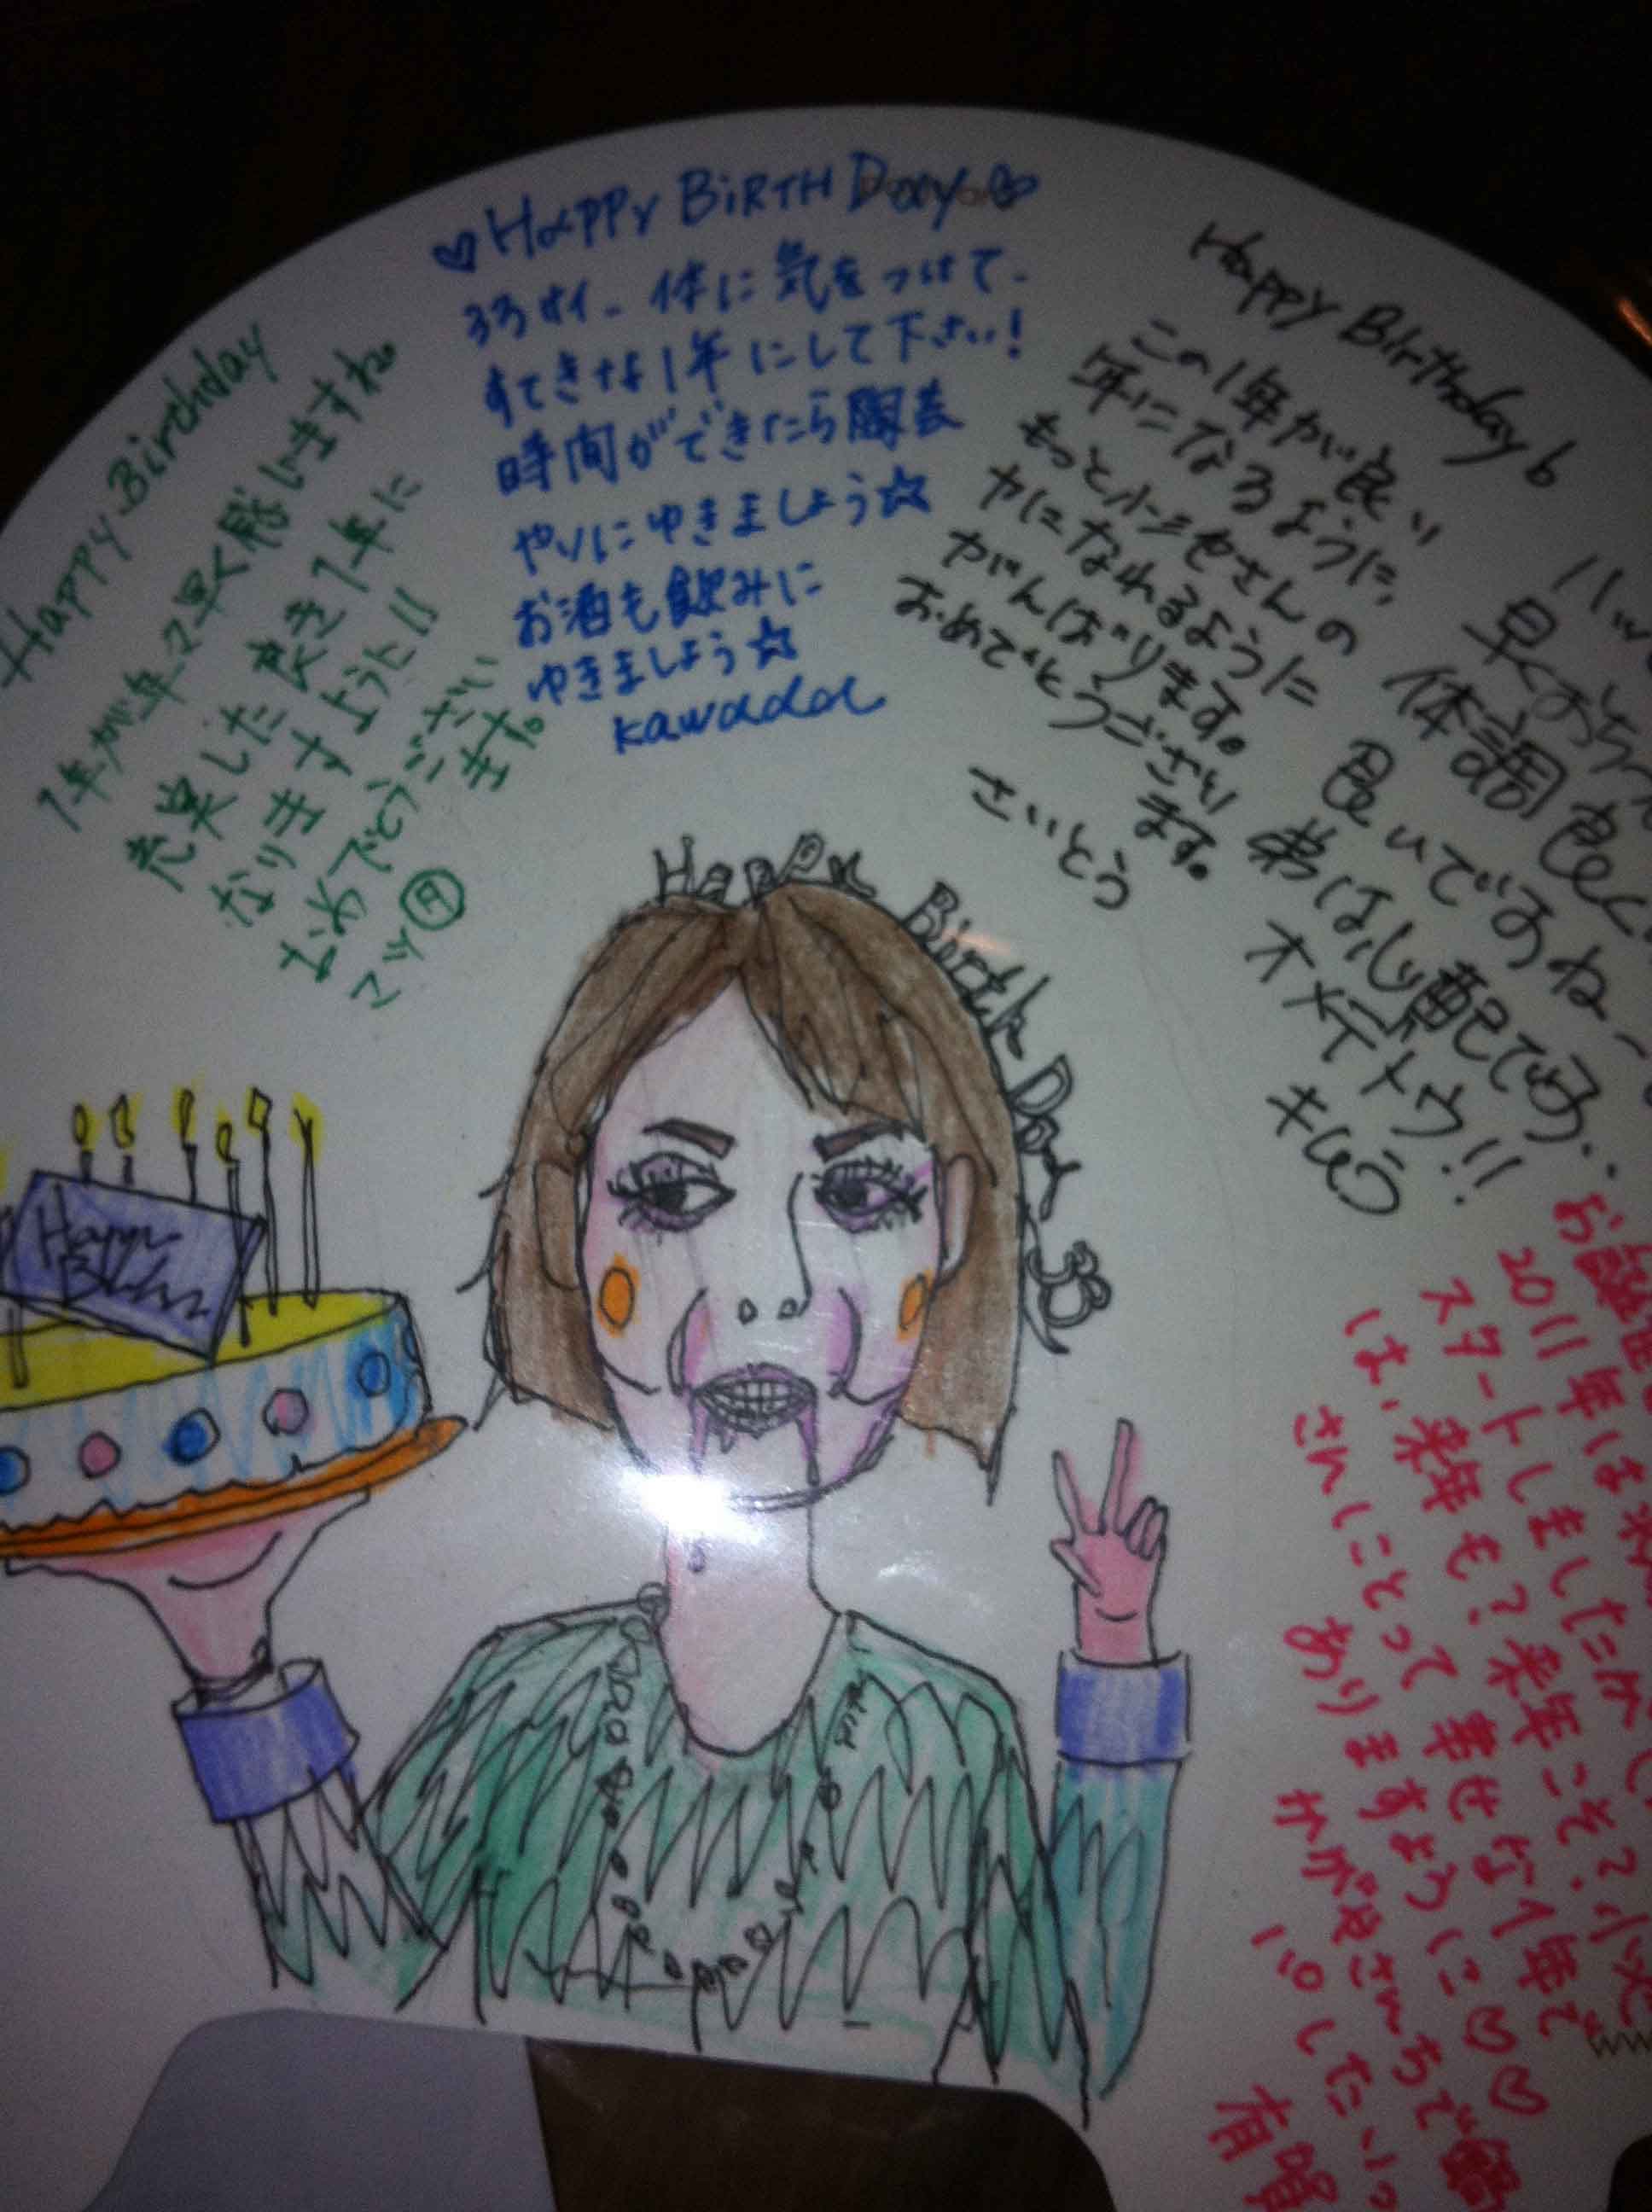 Happy Birthday
1年が年々早く感じますね。
充実した良き1年に
なりますように!!
おめでとうござい
ます。
♡Happy BiRTH Day
33サイ、体に気をつけて、
すてきな1年にして下さい!
時間ができたら陶芸
やりにゆきましょう☆
お酒も飲みに
ゆきましょう☆
kawada
Happy Birthday
この1年が良い
年になるように、
もっと小
さんの
力になれるように
がんばります。
おめでとうござい
ます。
さいとう
早くおちつ
体調良く
良いですね〜
弟は心配でる..
オメデトウ!!
Happy Birth Day
Happy
お誕
2011年は
スタートしましたが
は、来年も?来年こそ?小
さんにとって幸せな1年で
ありますように♡♡
かがやさんちで
したい
有賀
ww